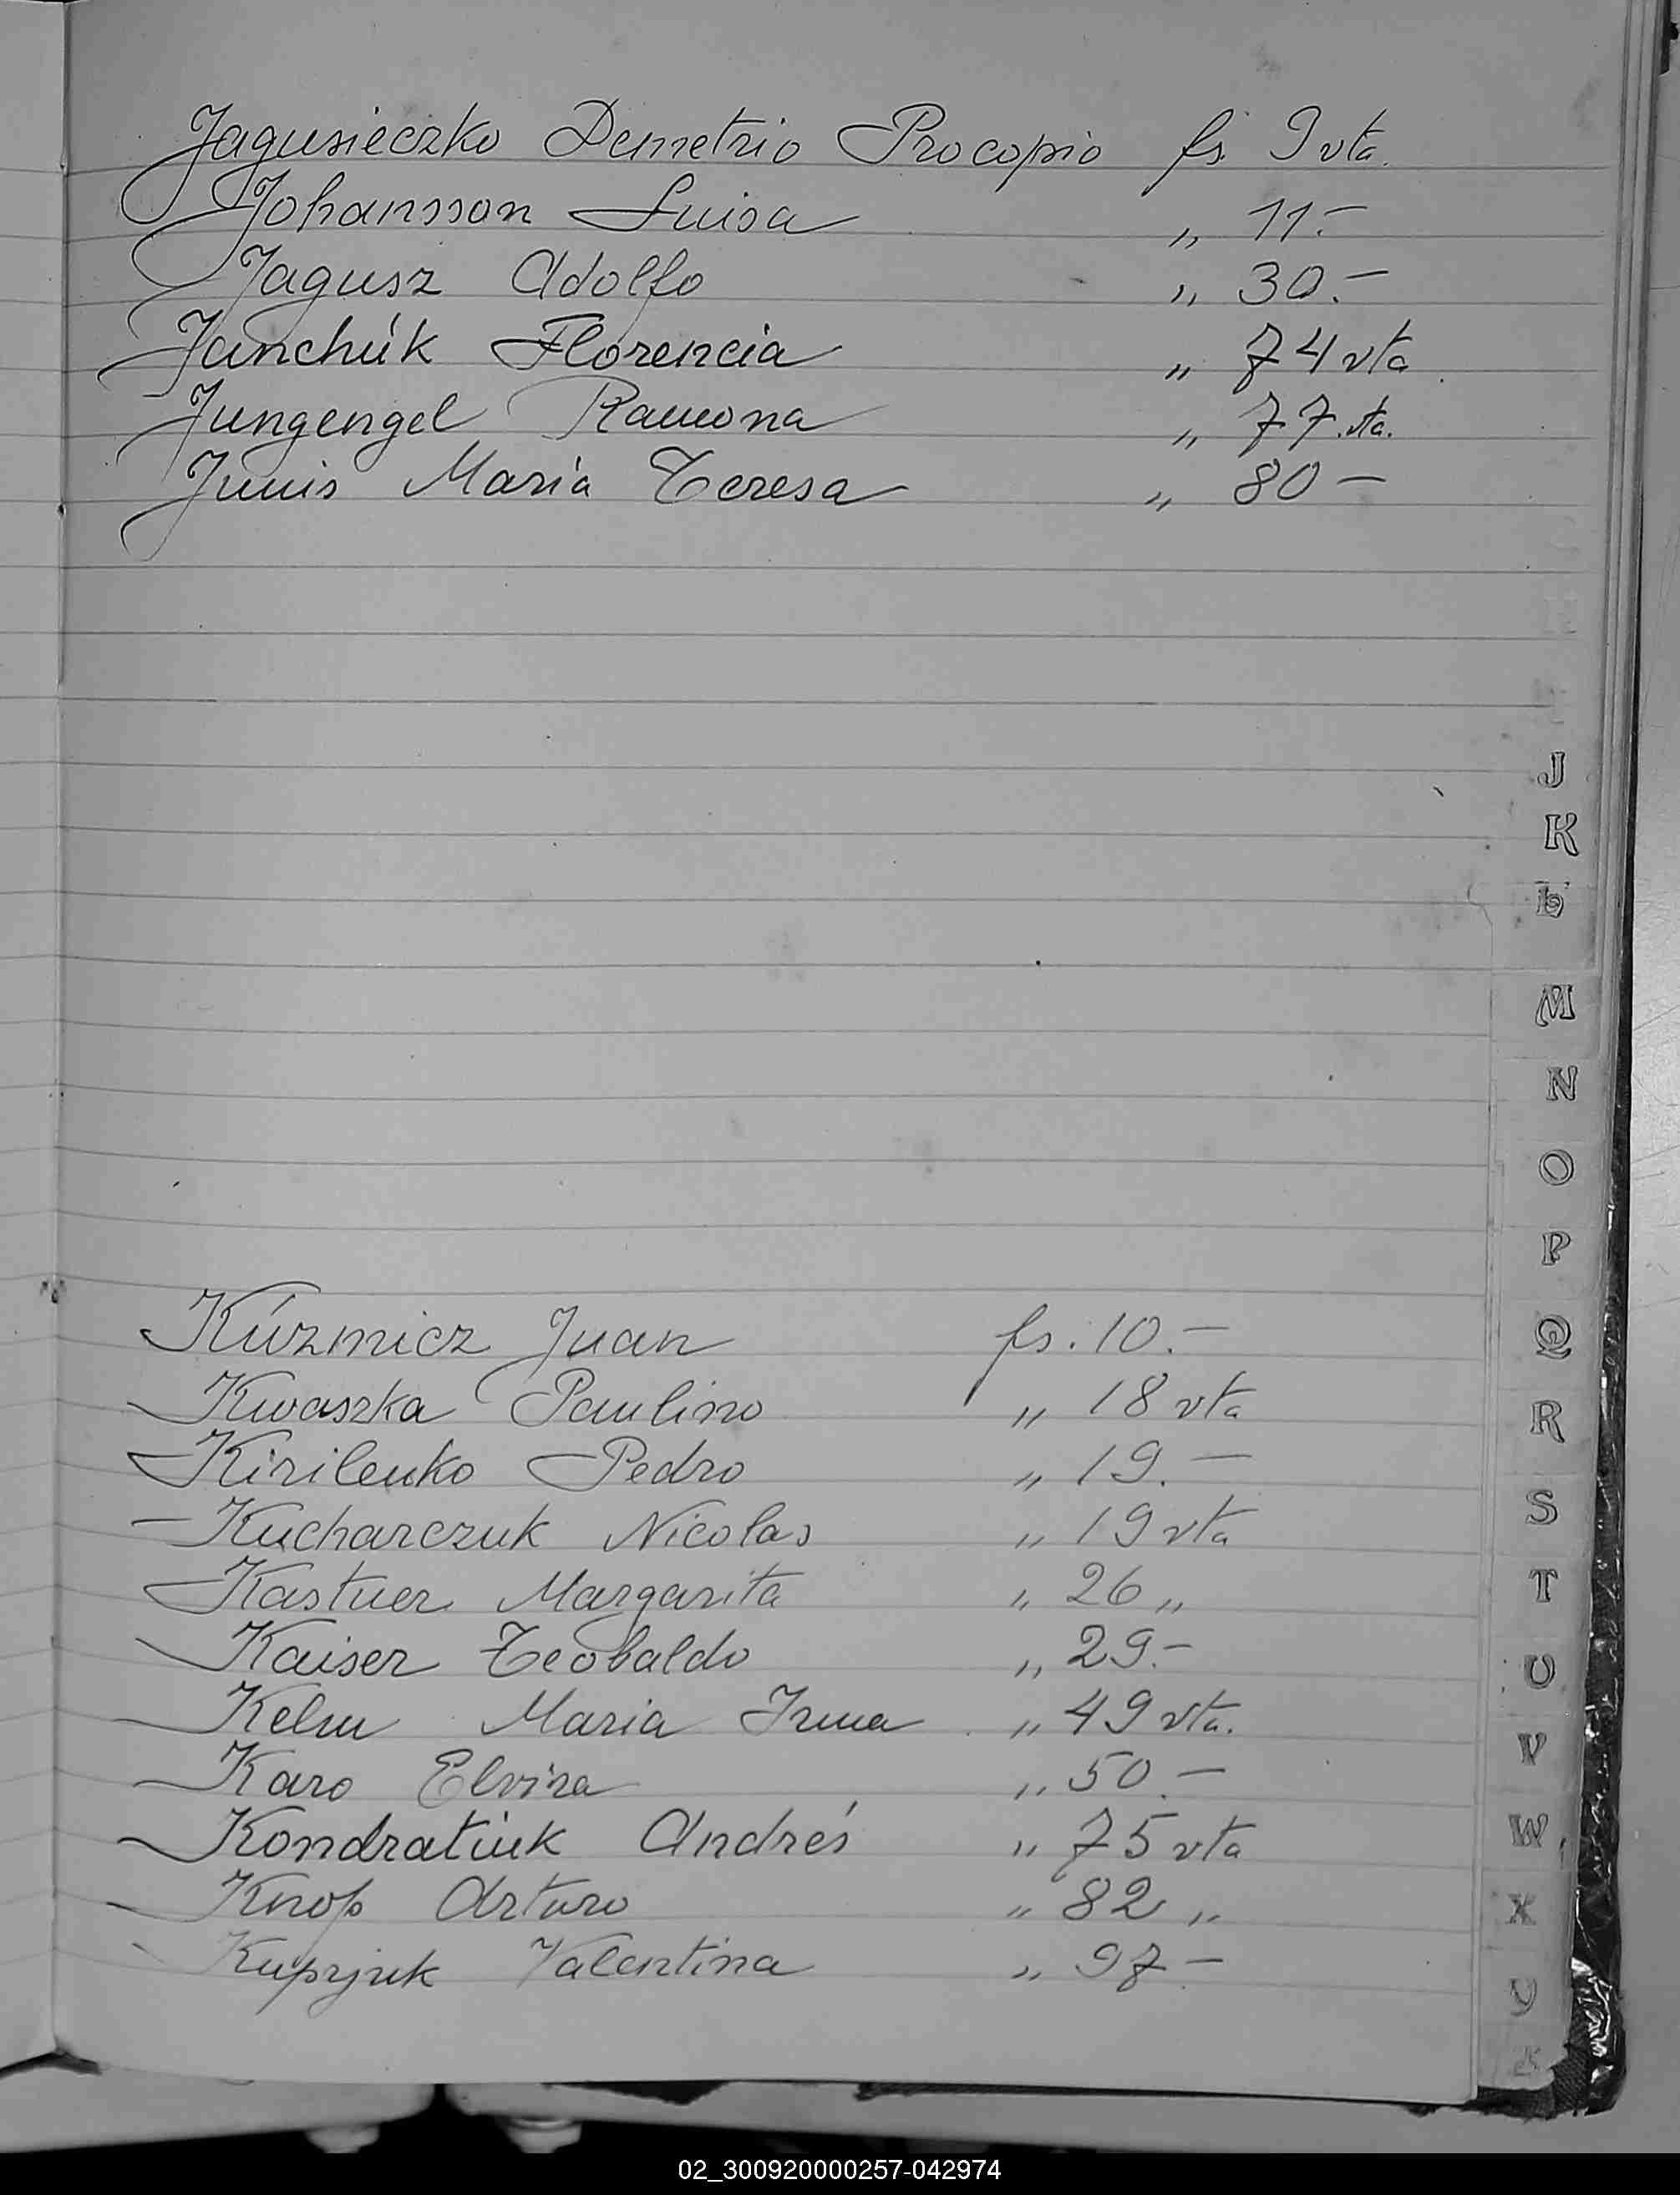 Jagusieczko Demetrio Procopio fs. 9 vta.
Johansson Luisa „ 11.-
Jagusz Adolfo „ 30.-
Janchúk Florencia „ 74 vta.
Jungengel Ramona „ 77 vta.
Junis María Teresa „ 80 -
J
K
L
M
N
O
P
Q
R
S
T
U
V
W
X
Y
Z
Kúzmicz Juan fs. 10.-
Kwaszka Paulino „ 18 vta
Kirilenko Pedro „ 19.-
Kucharczuk Nicolas „ 19 vta
Kastner Margarita „ 26 „
Kaiser Teobaldo „ 29.-
Kelm Maria Irma „ 49 vta.
Karo Elvira „ 50.-
Kondratiuk Andrés „ 75 vta
Knop Arturo „ 82 „
Kuprjuk Valentina „ 97 -
02_300920000257-042974